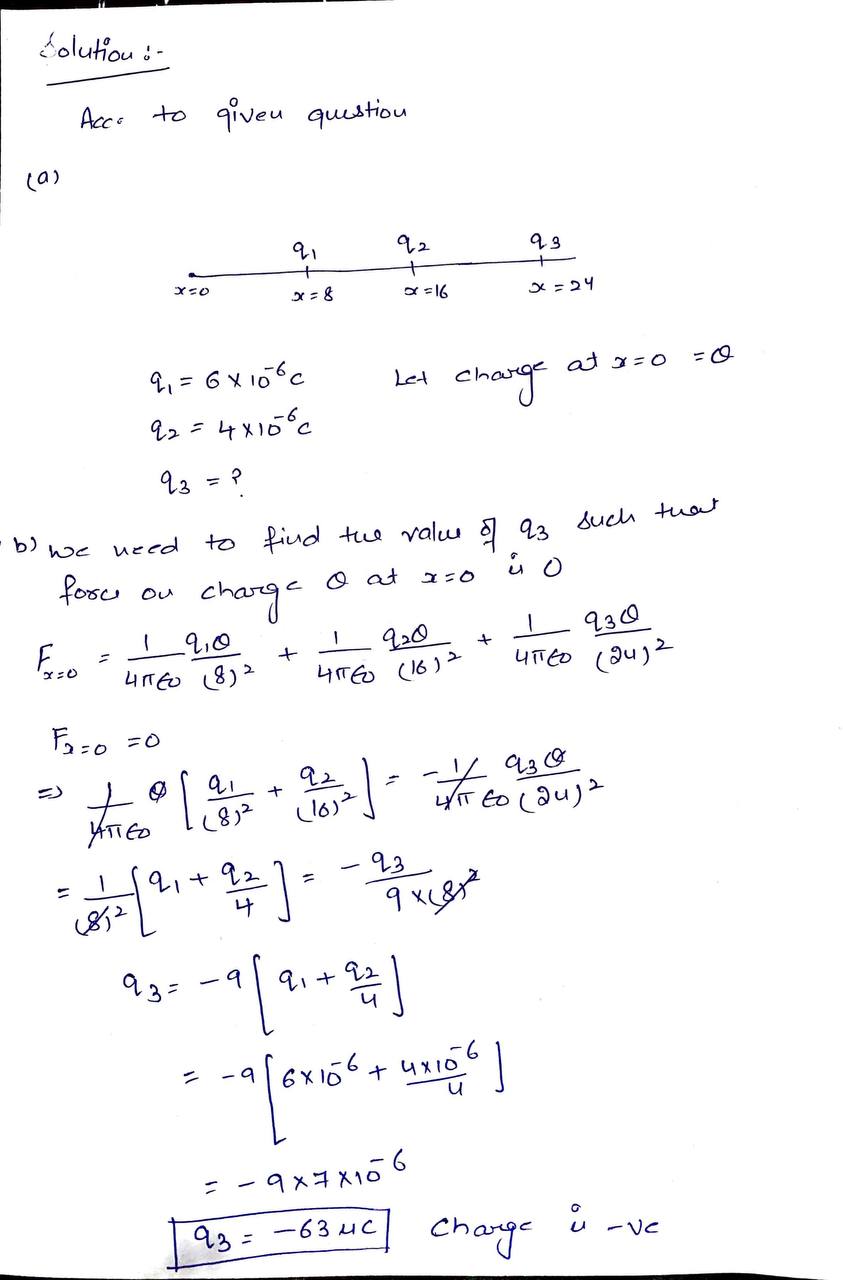 Solution :-
Acc. to given question
(a)
q₁ q₂ q₃
x=0 x=8 x=16 x=24
q₁ = 6×10⁻⁶c Let charge at x=0 = Q
q₂ = 4×10⁻⁶c
q₃ = ?
b) we need to find the value of q₃ such that
force on charge Q at x=0 is 0
Fₓ₌₀ = 1/4πε₀ q₁Q/(8)² + 1/4πε₀ q₂Q/(16)² + 1/4πε₀ q₃Q/(24)²
Fₓ₌₀ = 0
=> 1/4πε₀ Q [q₁/(8)² + q₂/(16)²] = -1/4πε₀ q₃Q/(24)²
= 1/(8)² [q₁ + q₂/4] = -q₃/9×(8)²
q₃ = -9[q₁ + q₂/4]
= -9[6×10⁻⁶ + 4×10⁻⁶/4]
= -9×7×10⁻⁶
q₃ = -63 μC Charge is -ve